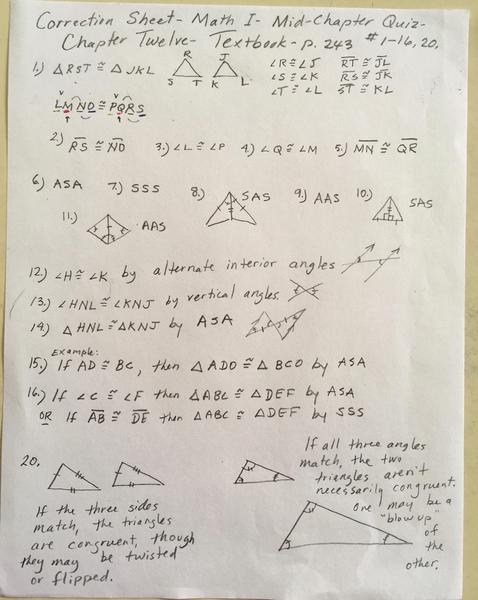 Correction Sheet - Math I - Mid-Chapter Quiz -
Chapter Twelve - Textbook - p. 243 #1-16, 20.
1.) △RST ≅ △JKL R S T J K L ∠R≅∠J RT ≅ JL
∠S≅∠K RS ≅ JK
∠T≅∠L ST ≅ KL
LMNO ≅ PQRS
2.) RS ≅ NO 3.) ∠L ≅ ∠P 4.) ∠Q≅∠M 5.) MN ≅ QR
6.) ASA 7.) SSS 8.) SAS 9.) AAS 10.) SAS
11.) AAS
12.) ∠H≅∠K by alternate interior angles
13.) ∠HNL≅∠KNJ by vertical angles.
14.) △HNL≅△KNJ by ASA
Example:
15.) If AD ≅ BC, then △ADO ≅ △BCO by ASA
16.) If ∠C ≅ ∠F then △ABC ≅ △DEF by ASA
OR If AB ≅ DE then △ABC ≅ △DEF by SSS
20.
If the three sides
match, the triangles
are congruent, though
they may be twisted
or flipped.
If all three angles
match, the two
triangles aren't
necessarily congruent.
One may be a
"blow up"
of
the
other.